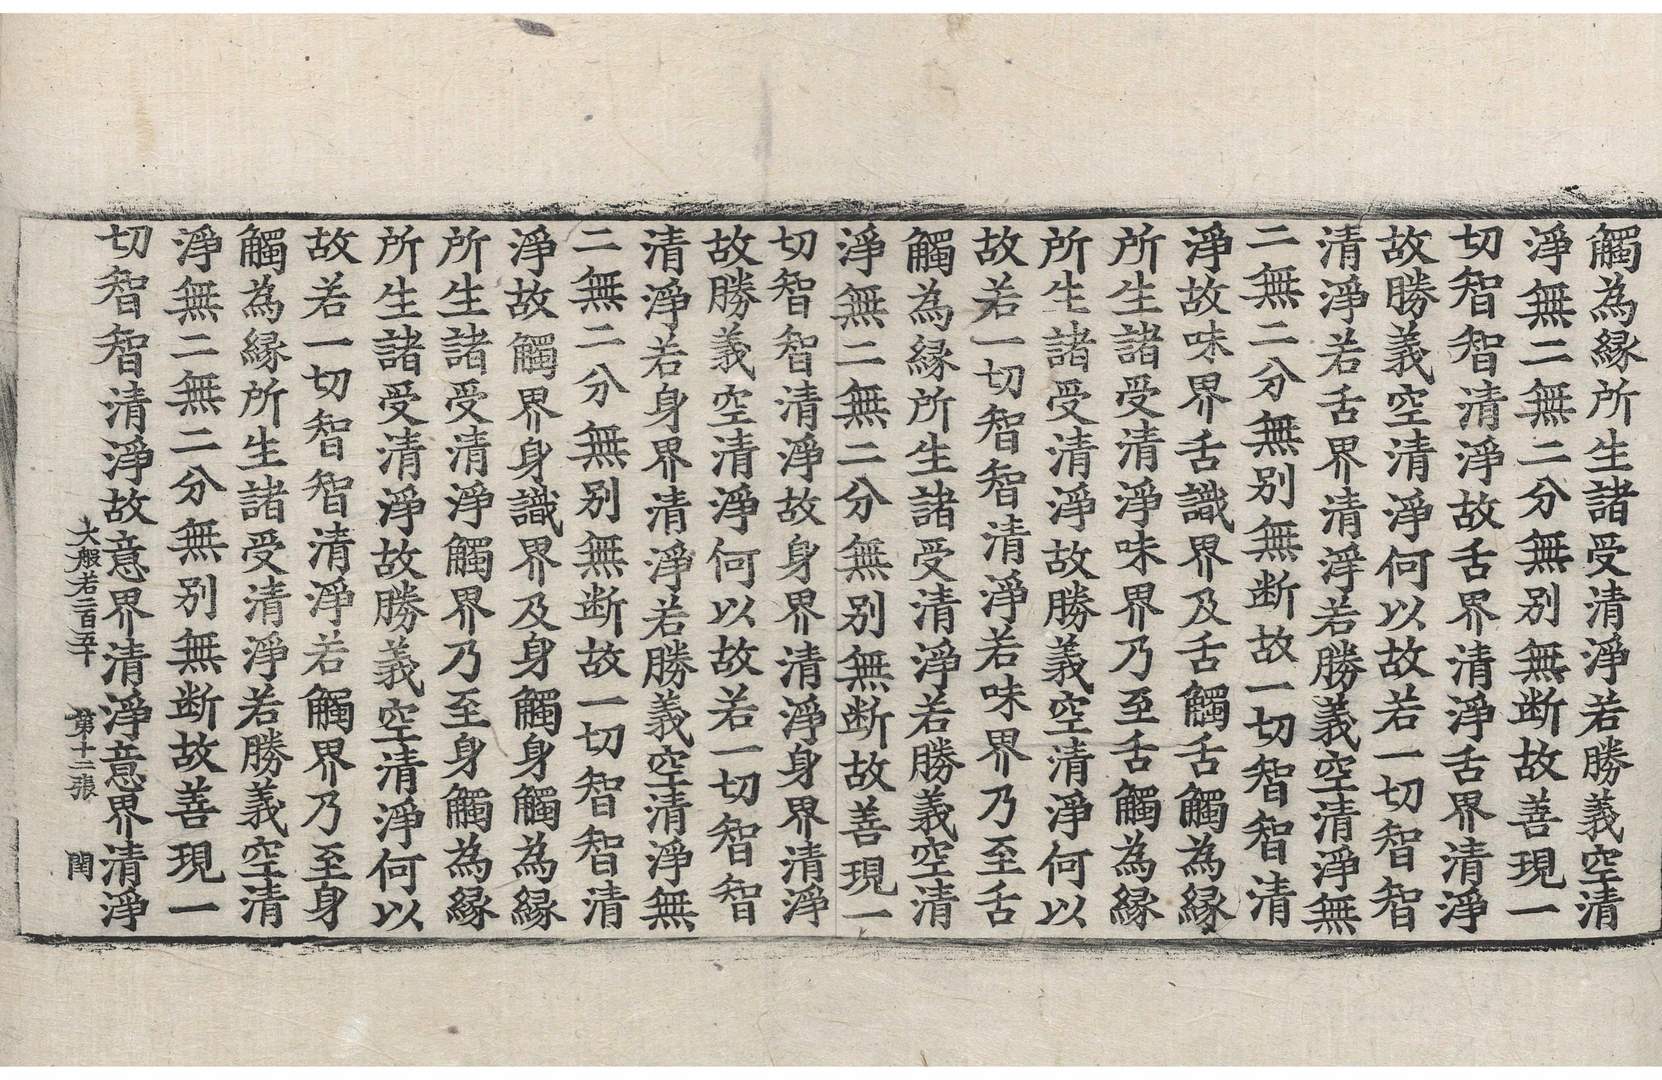 觸為縁所生諸受清淨若勝義空清
淨無二無二分無別無断故善現一
切智智清淨故舌界清淨舌界清淨
故勝義空清淨何以故若一切智智
清淨若舌界清淨若勝義空清淨無
二無二分無別無断故一切智智清
淨故味界舌識界及舌觸舌觸為縁
所生諸受清淨味界乃至舌觸為縁
所生諸受清淨故勝義空清淨何以
故若一切智智清淨若味界乃至舌
觸為縁所生諸受清淨若勝義空清
淨無二無二分無別無断故善現一
切智智清淨故身界清淨身界清淨
故勝義空清淨何以故若一切智智
清淨若身界清淨若勝義空清淨無
二無二分無別無断故一切智智清
淨故觸界身識界及身觸身觸為縁
所生諸受清淨觸界乃至身觸為縁
所生諸受清淨故勝義空清淨何以
故若一切智智清淨若觸界乃至身
觸為縁所生諸受清淨若勝義空清
淨無二無二分無別無断故善現一
切智智清淨故意界清淨意界清淨
大般若二百五十 第十二張 閏